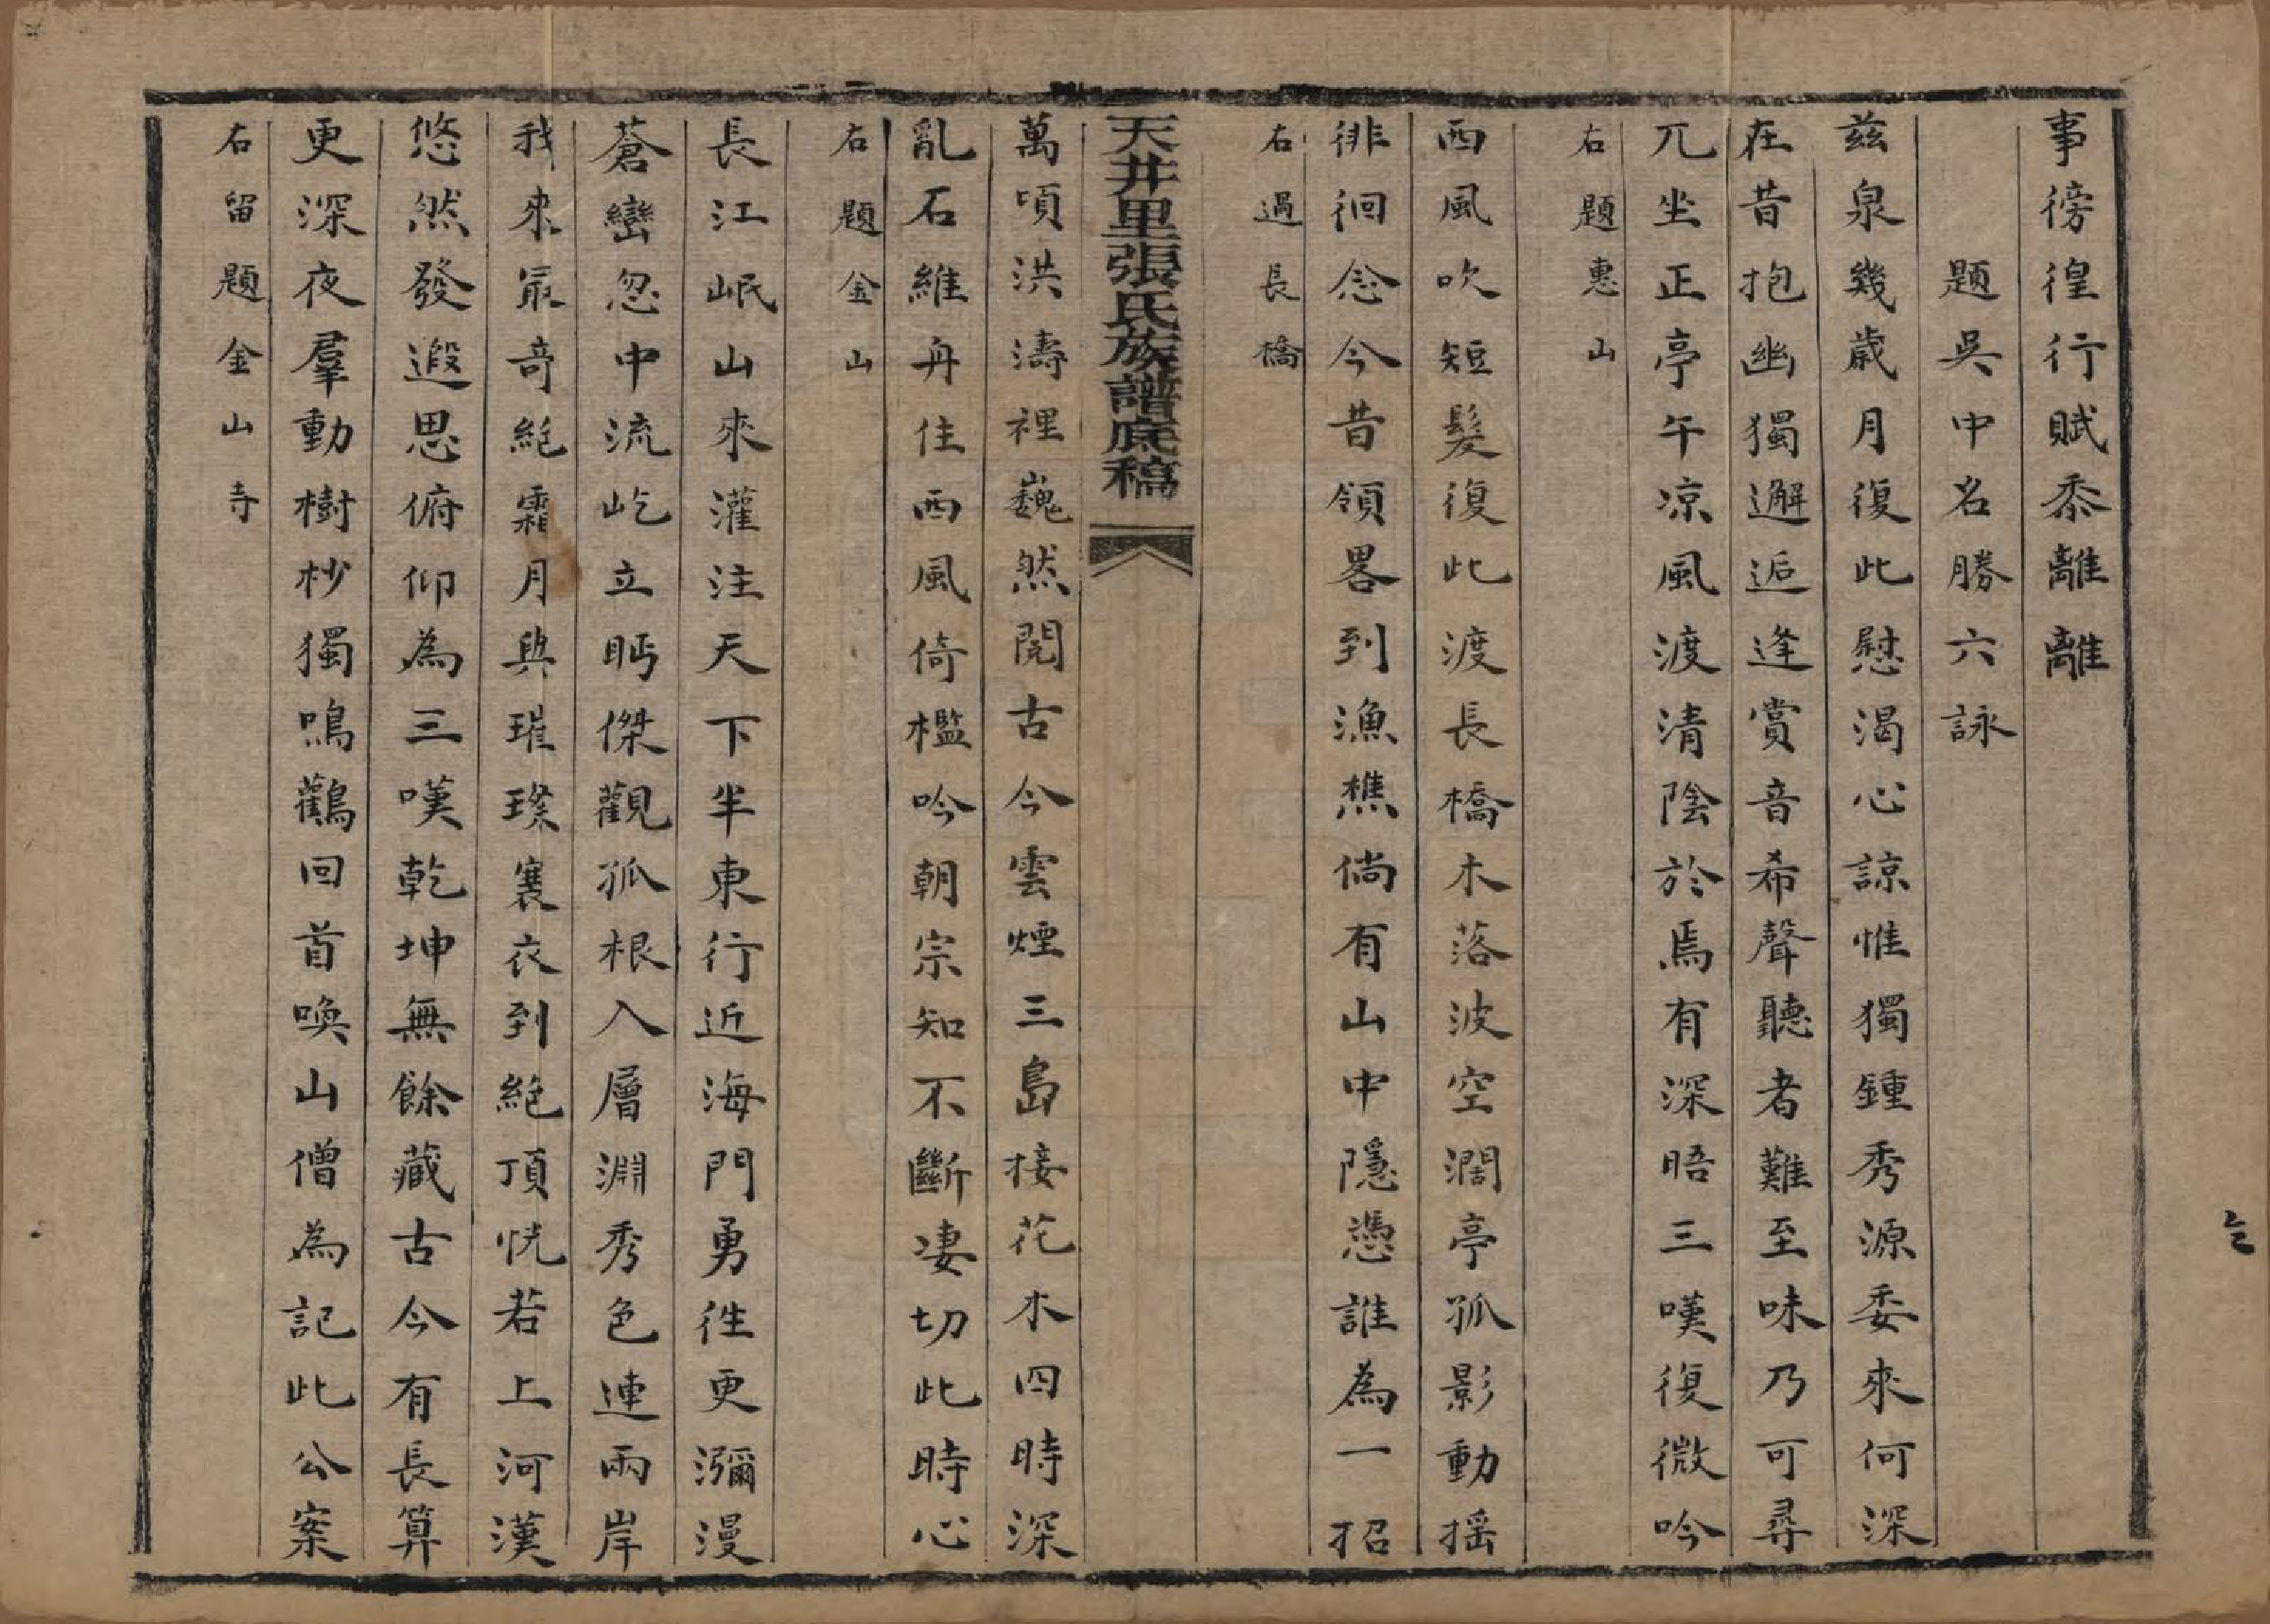 事徬徨行賦黍離離
題吳中名勝六詠
兹泉幾歲月復此慰渴心諒惟獨鍾秀源委來何深
在昔抱幽獨邂逅逢賞音希聲聽者難至味乃可尋
兀坐正亭午凉風渡清陰於焉有深晤三嘆復微吟
右題惠山
西風吹短髮復此渡長橋木落波空濶亭孤影動搖
徘徊念今昔領畧到漁樵倘有山中隱憑誰為一招
右過長橋
天井里張氏族譜底稿
萬頃洪濤裡巍然閱古今雲煙三島接花木四時深
亂石維舟住西風倚檻吟朝宗知不斷凄切此時心
右題金山
長江岷山來灌注天下半東行近海門勇徃更瀰漫
蒼巒忽中流屹立眄傑觀孤根入層淵秀色連兩岸
我來最奇絕霜月與璀璨褰衣到絕頂恍若上河漢
悠然發遐思俯仰為三嘆乾坤無餘藏古今有長算
更深夜羣動樹杪獨鳴鸛回首喚山僧為記此公案
右留題金山寺